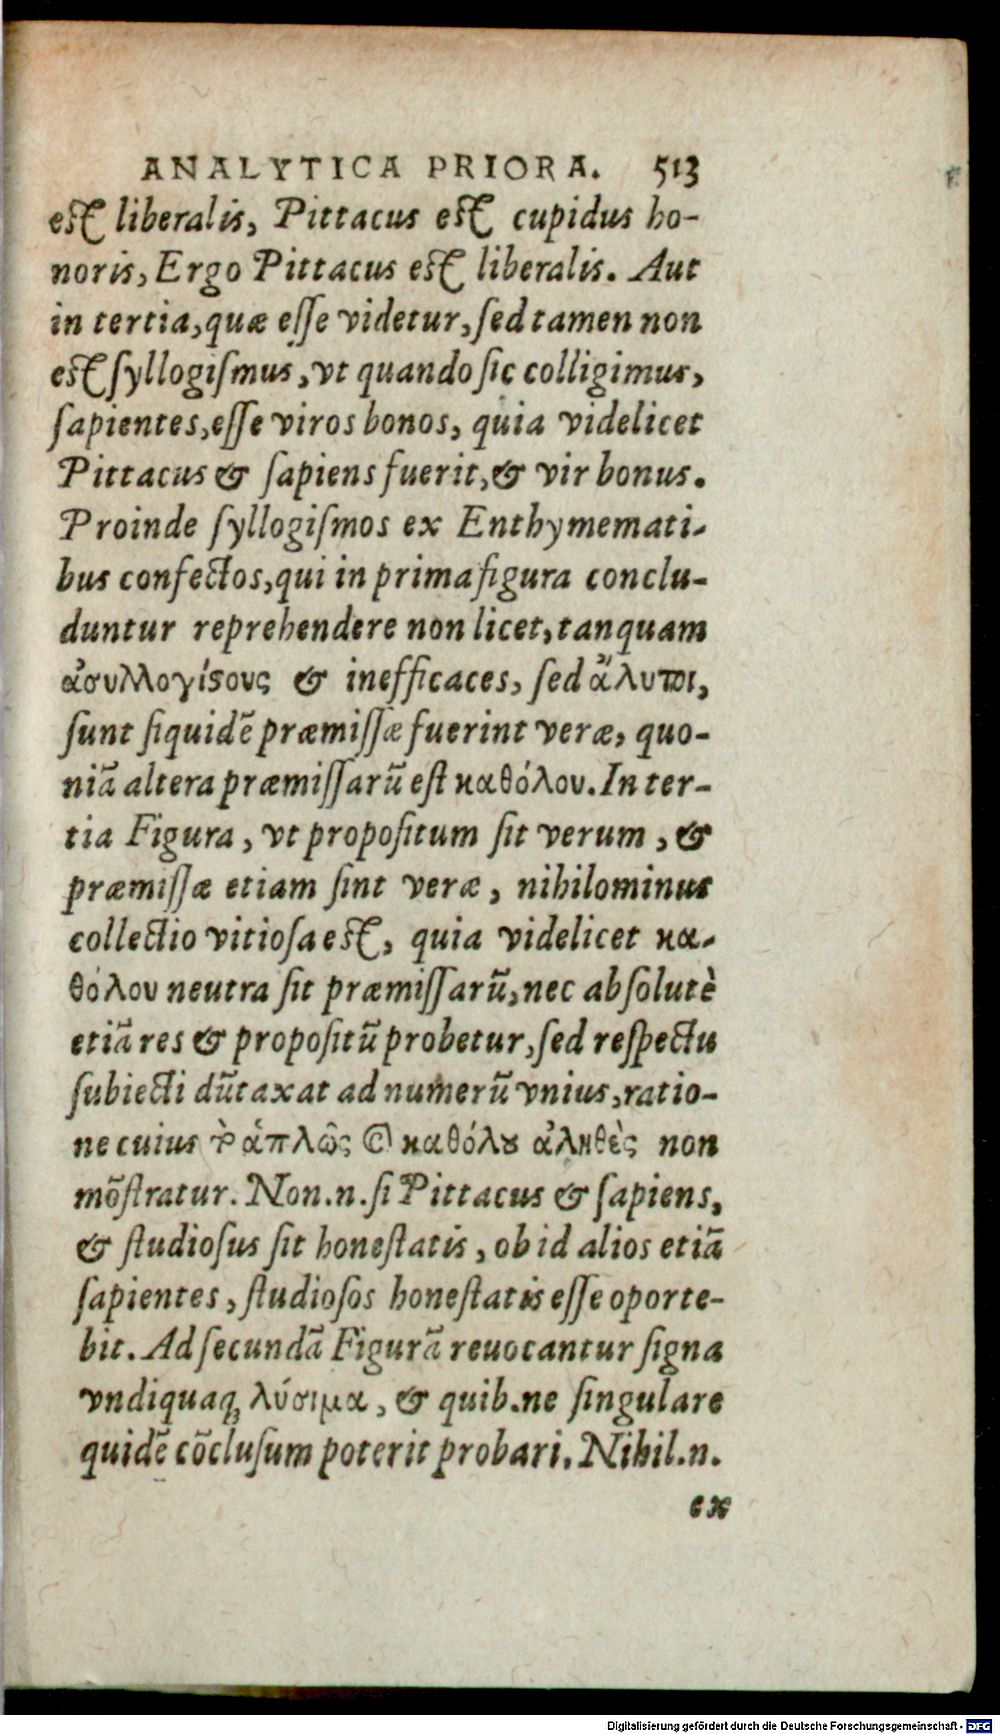 ANALYTICA PRIORA. 513
est liberalis, Pittacus est cupidus ho-
noris, Ergo Pittacus est liberalis. Aut
in tertia, quæ eſſe videtur, ſed tamen non
est ſyllogiſmus, vt quando ſic colligimus,
ſapientes, eſſe viros bonos, quia videlicet
Pittacus & ſapiens fuerit, & vir bonus.
Proinde ſyllogiſmos ex Enthymemati-
bus confectos, qui in prima figura conclu-
duntur reprehendere non licet, tanquam
ἀσυλλογίϛους & inefficaces, ſed ἄλυτοι,
ſunt ſiquidē præmiſſæ fuerint veræ, quo-
niā altera præmiſſarū eſt καθόλου. In ter-
tia Figura, vt propoſitum ſit verum, &
præmiſſæ etiam ſint veræ, nihilominus
collectio vitioſa est, quia videlicet κα-
θόλου neutra ſit præmiſſarū, nec abſolutè
etiā res & propoſitū probetur, ſed reſpectu
ſubiecti dūtaxat ad numerū vnius, ratio-
ne cuius τὸ ἁπλῶς ϗ καθόλȣ ἀληθὲς non
mōſtratur. Non.n.ſi Pittacus & ſapiens,
& ſtudioſus ſit honeſtatis, ob id alios etiā
ſapientes, ſtudioſos honeſtatis eſſe oporte-
bit. Ad ſecundā Figurā reuocantur ſigna
vndiquaq; λύσιμα, & quib.ne ſingulare
quidē cōcluſum poterit probari. Nihil.n.
ex
Digitalisierung gefördert durch die Deutsche Forschungsgemeinschaft - DFG